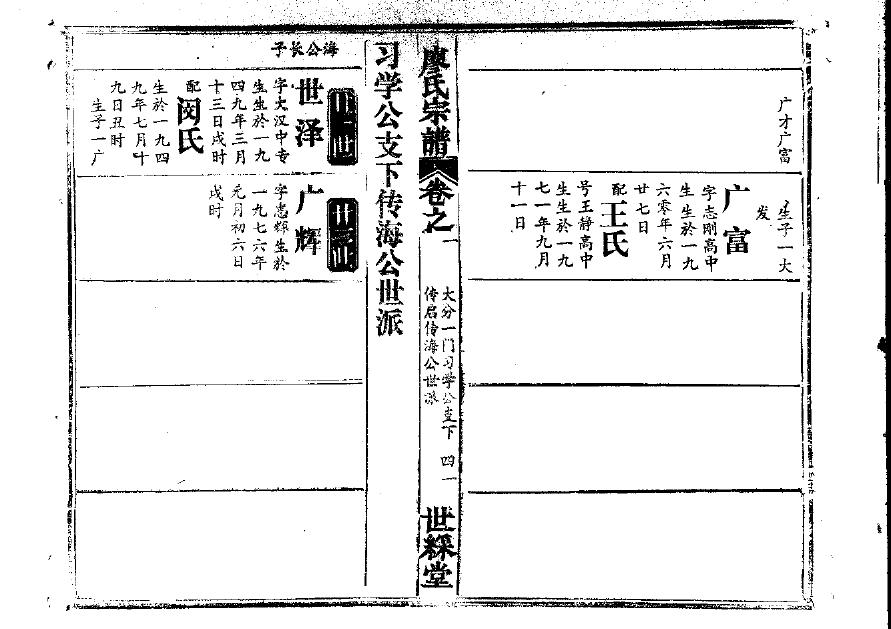 广才广富
生子一大
发
广富
字志刚高中
生生於一九
六零年六月
廿七日
配王氏
号王静高中
生生於一九
七一年九月
十一日
廖氏宗譜
卷之一
大分一门习学公支下 四一
传启传海公世派
世綵堂
习学公支下传海公世派
海公长子
世泽
字大汉中专
生生於一九
四九年三月
十三日戌时
配闵氏
生於一九四
九年七月叶
九日丑时
生子一广
广辉
字忠辉生於
一九七六年
元月初六日
戌时